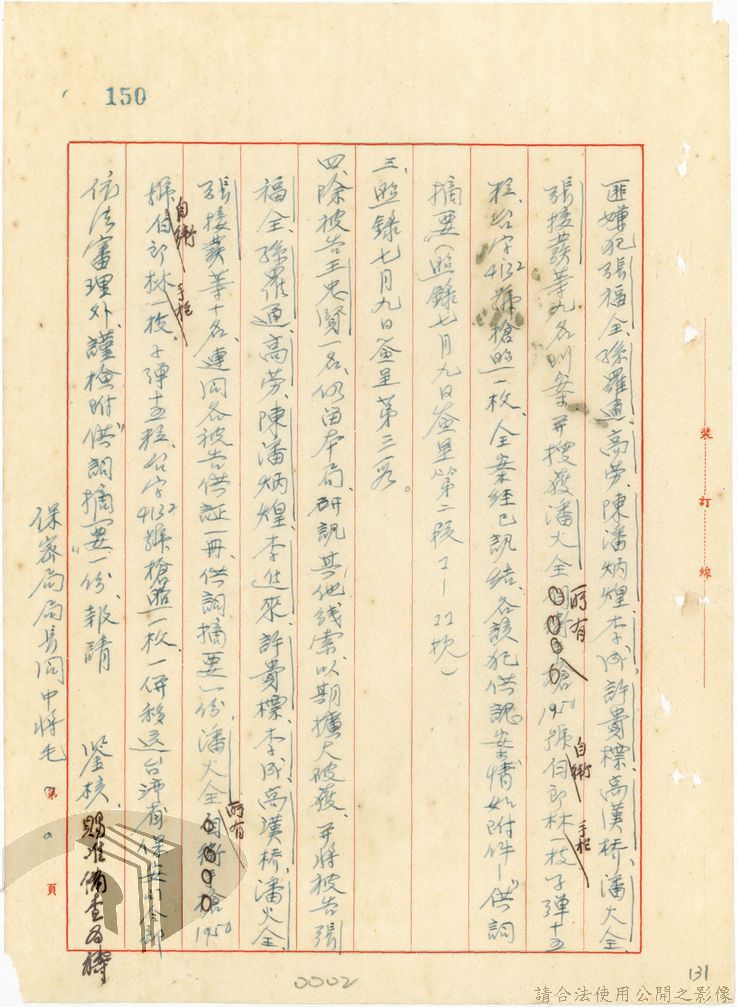 150
匪嫌犯張福全、孫羅通、高勞、陳潘炳煌、李成、許貴標、高漢橋、潘火全、
張接蔉等九名到案并搜獲潘火全所有槍1950號自衛手枪伯郎林一枝子彈十五
粒、台字4132號槍照一枚、全案經已訊結、各該犯供認案情如附件一"供詞
摘要(照錄七月九日簽呈第二段1—22枕)
三、照錄七月九日簽呈第三段。
四、除被告王忠賢一名、仍留本局、研訊其他线索以期擴大破獲、并將被告張
福全、孫羅通、高勞、陳潘炳煌、李進來、許貴標、李成、高漢橋、潘火全、
張接蔉等十名、連同各被告供証一冊、供詞摘要一份、潘火全所有槍1950
號自衛手枪伯郎林一枝、子彈十五粒、台字4132號槍照一枚、一併移送台湾省保安司令部
依法審理外、謹檢附"供詞摘要"一份、報請 鑒核、賜准備查為禱
保密局局長周中將毛
第 頁
裝訂線
0002
131
請合法使用公開之影像